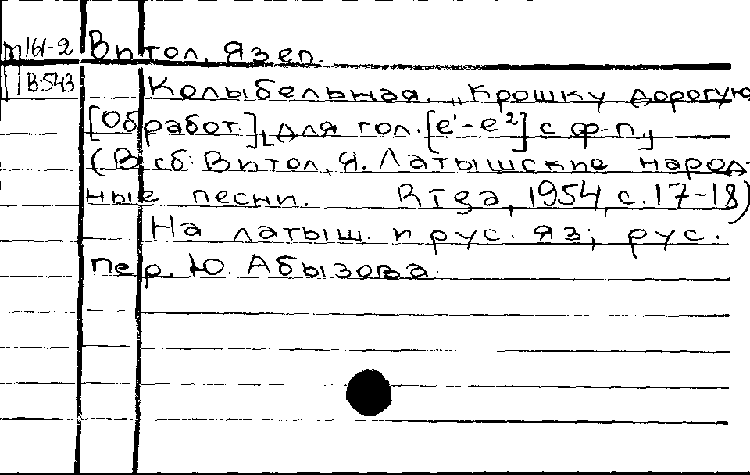 м161-2 Витол, Язеп.
В543 Колыбельная. „Крошку дорогую
[Обработ.] для гол. [e¹-e²] с ф-п.
(В сб: Витол, Я. Латышские народ-
ные песни. Rīga, 1954, с. 17-18)
На латыш. и рус. яз; рус.
пер. Ю. Абызова.